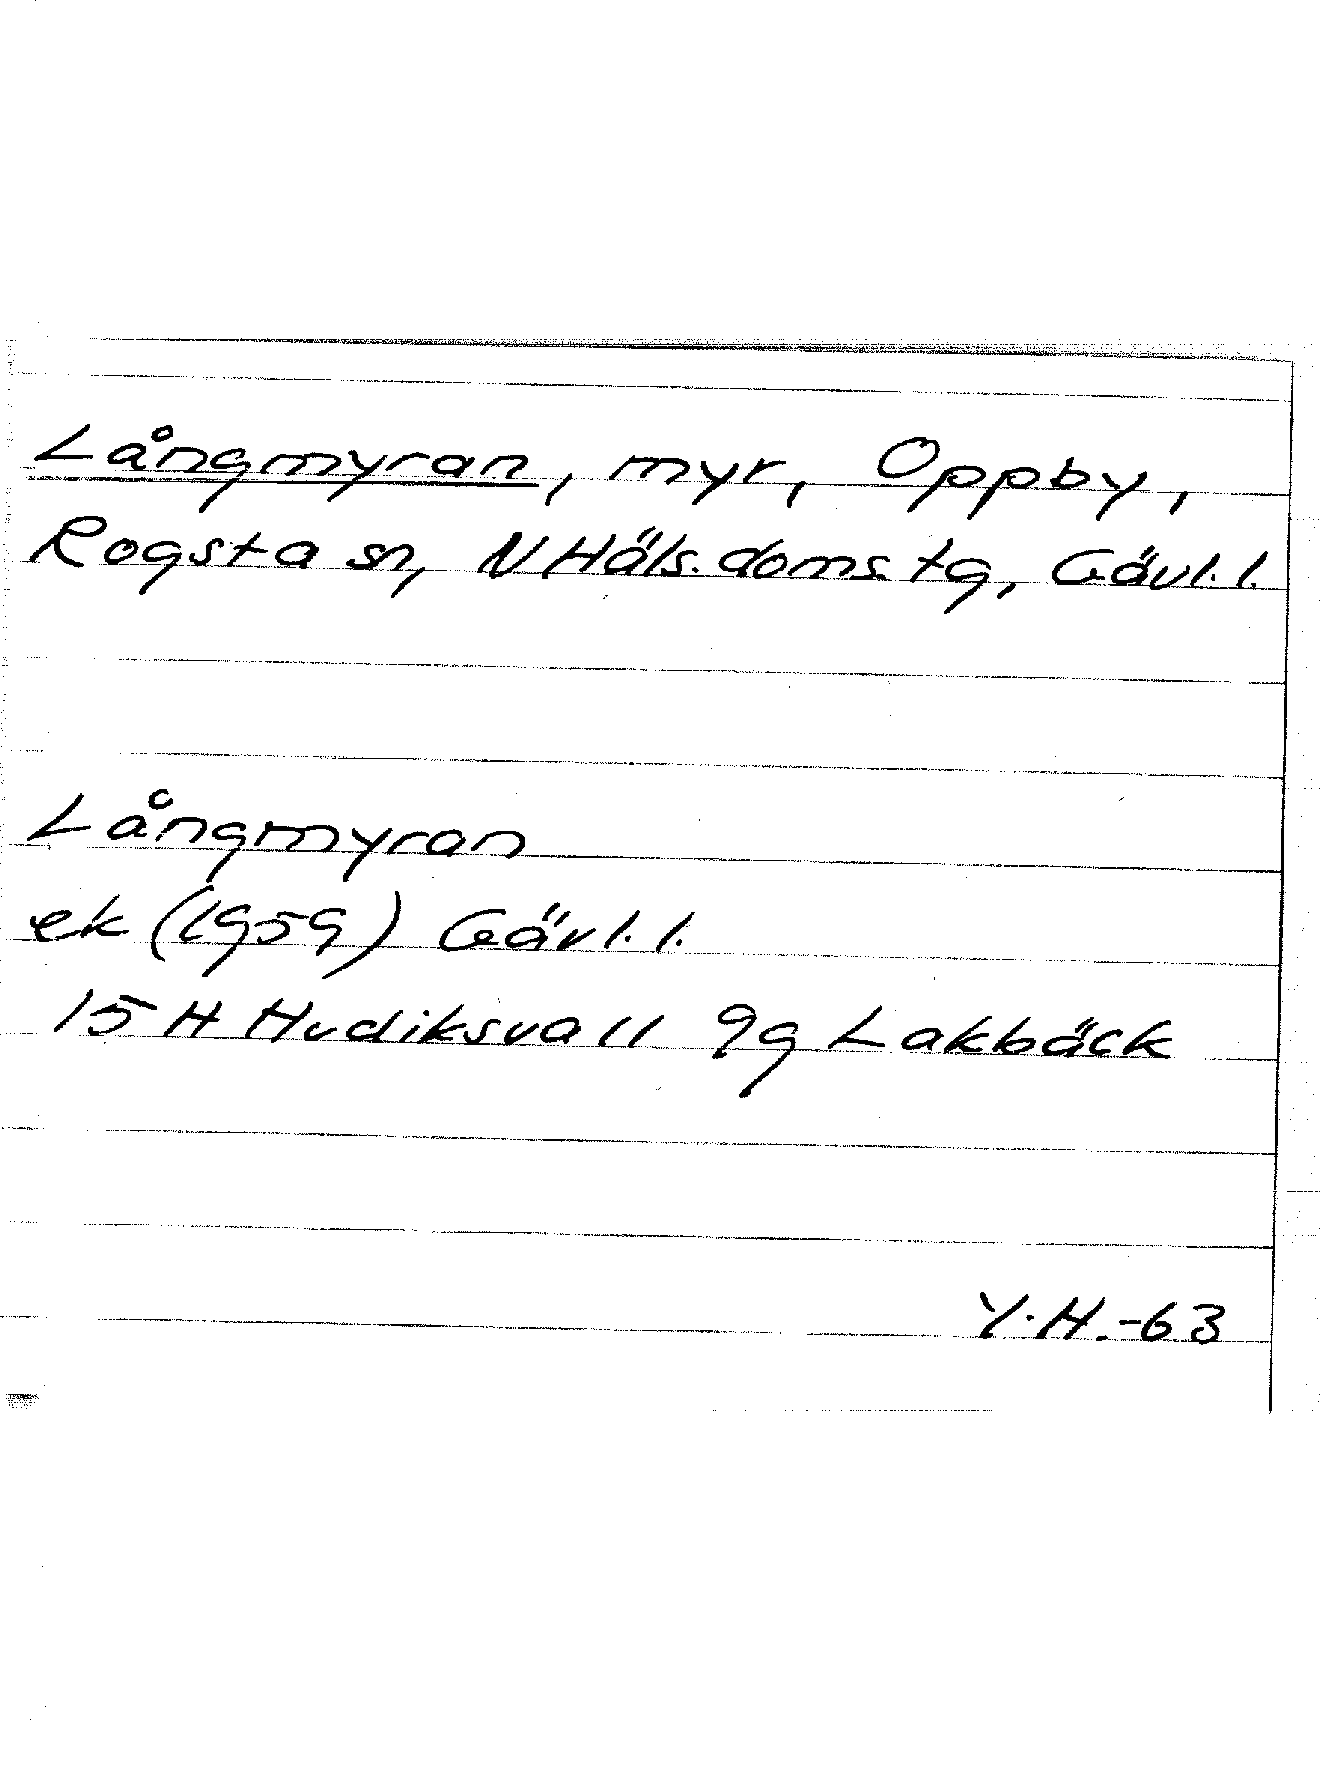 Långmyran, myr, Oppby,
Rogsta sn, N Häls. doms. tg, Gävl. l.
Långmyran
ek (1959) Gävl. l.
15 H Hudiksvall 9g Lakbäck
Y.H.-63